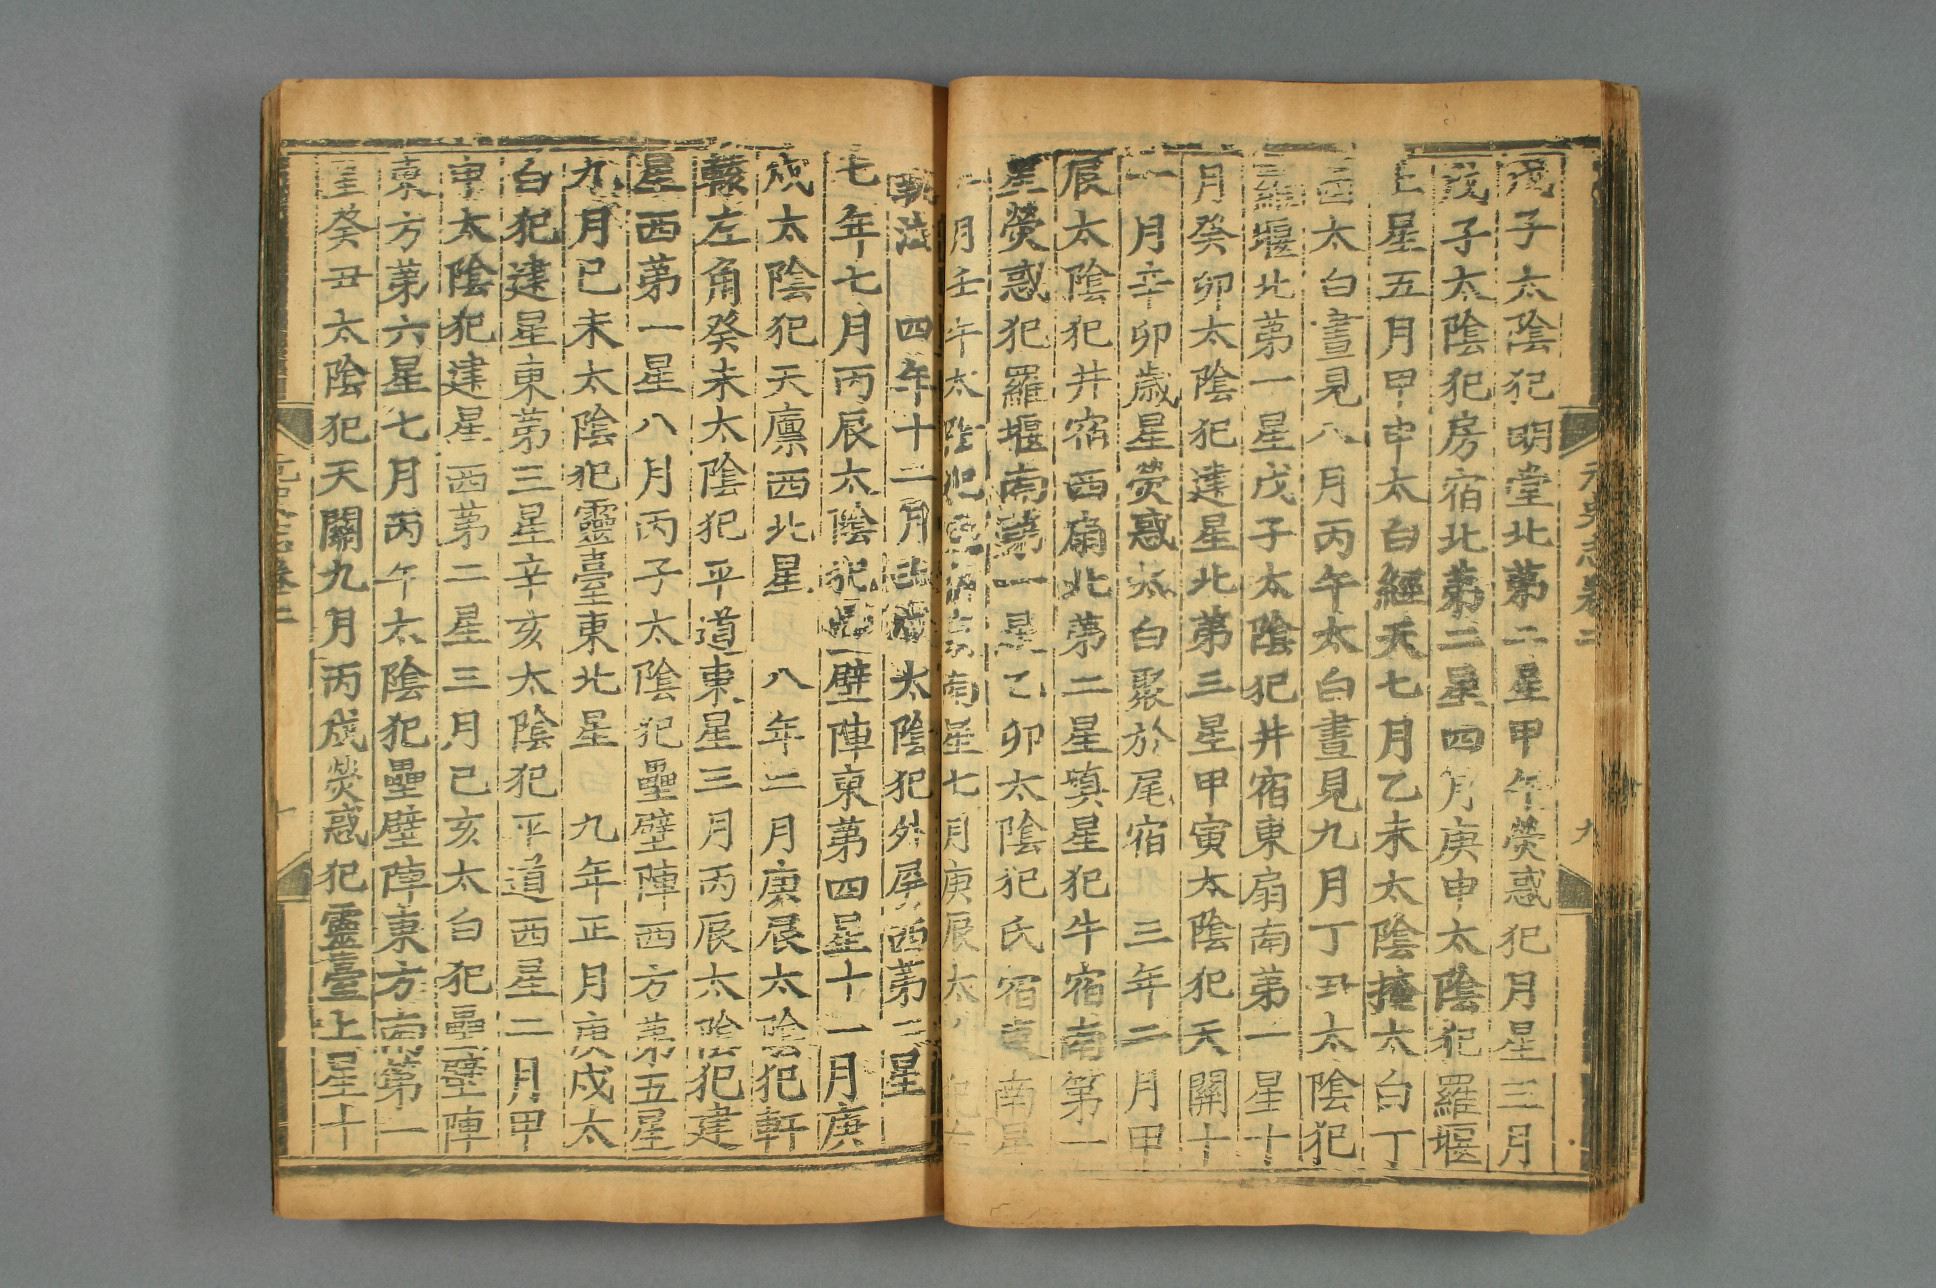 戊子太陰犯明堂北第二星甲午熒惑犯月星三月
戊子太陰犯房宿北第二星四月庚申太陰犯羅堰
上星五月甲申太白經天七月乙未太陰掩太白丁
酉太白晝見八月丙午太白晝見九月丁丑太陰犯
羅堰北第一星戊子太陰犯井宿東扇南第一星十
月癸卯太陰犯建星北第三星甲寅太陰犯天關十
一月辛卯歲星熒惑太白聚於尾宿 三年二月甲
辰太陰犯井宿西扇北第二星填星犯牛宿南第一
星熒惑犯羅堰南第一星乙卯太陰犯氐宿東南星
月壬午太陰犯 南星七月庚辰太 犯
執法 四年十二月 太陰犯外屏西第二星
七年七月丙辰太陰犯壘壁陣東第四星十一月庚
戌太陰犯天廩西北星 八年二月庚辰太陰犯軒
轅左角癸未太陰犯平道東星三月丙辰太陰犯建
星西第一星八月丙子太陰犯壘壁陣西方第五星
九月己未太陰犯靈臺東北星 九年正月庚戌太
白犯建星東第三星辛亥太陰犯平道西星二月甲
申太陰犯建星西第二星三月己亥太白犯壘壁陣
東方第六星七月丙午太陰犯壘壁陣東方南第一
星癸丑太陰犯天關九月丙戌熒惑犯靈臺上星十
元史志卷二
九
元史志卷二
十